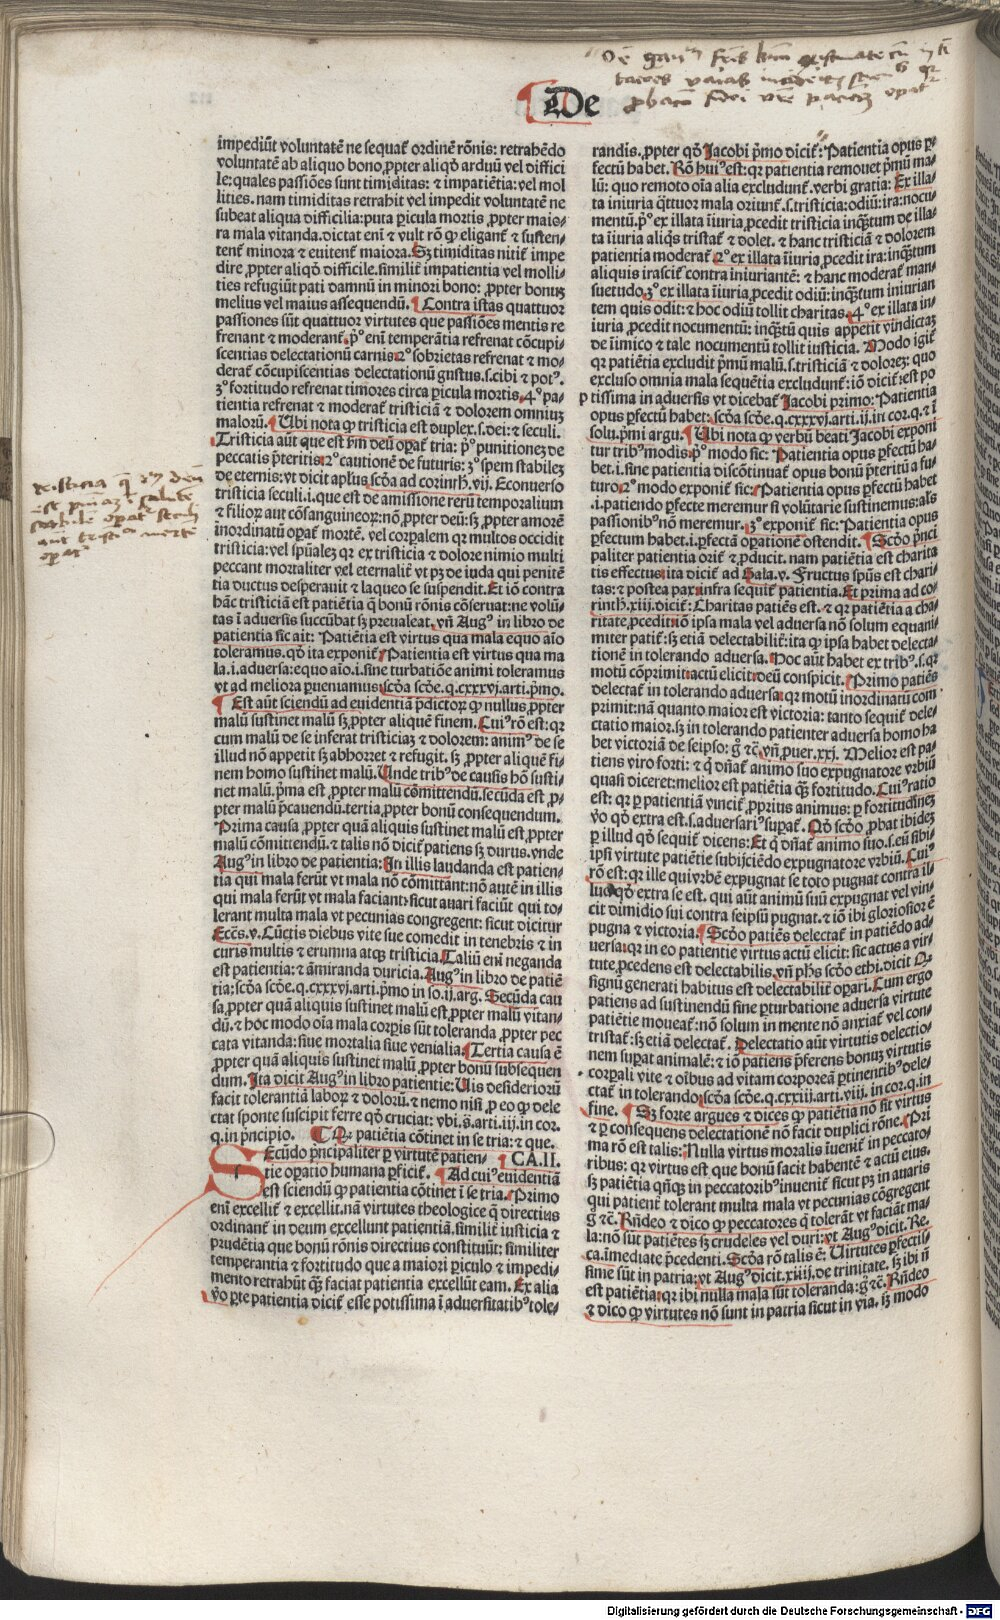 De
impediūt voluntatē ne sequat̄ ordinē rōnis: retrahēdo
voluntatē ab aliquo bono ꝓpter aliqđ arduū vel diffici
le: quales passiōes sunt timiditas: ⁊ impatiētia: vel mol
lities. nam timiditas retrahit vel impedit voluntatē ne
subeat aliqua difficilia: puta ꝑicula mortis ꝓpter maio⸗
ra mala vitanda. dictat eni ⁊ vult rō ꝙ eligant̄ ⁊ susten⸗
tent̄ minora ⁊ euitent̄ maiora. Sꝫ timiditas nitit̄ impe
dire ꝓpter aliqđ difficile. similit̄ impatientia vel molli⸗
ties refugiūt pati damnū in minori bono: ꝓpter bonuꝫ
melius vel maius assequendū. ¶ Contra istas quattuor
passiones sūt quattuor virtutes que passiōes mentis re
frenant ⁊ moderant̄. p̊ eni temperātia refrenat cōcupi⸗
scentias delectationū carnis. 2º sobrietas refrenat ⁊ mo⸗
derat̄ cōcupiscentias delectationū gustus. s. cibi ⁊ potꝰ.
3º fortitudo refrenat timores circa ꝑicula mortis. 4º pa⸗
tientia refrenat ⁊ moderat̄ tristiciā ⁊ dolorem omniuꝫ
malorū. ¶ Ubi nota ꝙ tristicia est duplex. s. dei: ⁊ seculi.
Tristicia aūt que est ꝑm deū oꝑat̄ tria: p̊ punitionez de
peccatis p̄teritis. 2º cautionē de futuris: 3º spem stabilez
de eternis: vt dicit apl̄us scđa ad corinth. vij. Econuerso
tristicia seculi. i. que est de amissione rerū temporalium
⁊ filioꝝ aut cōsanguineoꝝ: nō ꝓpter deū: sꝫ ꝓpter amorē
inordinatū oꝑat̄ mortē. vel corꝑalem qꝛ multos occidit
tristicia: vel spūalez qꝛ ex tristicia ⁊ dolore nimio multi
peccant mortaliter vel eternalit̄ vt pꝫ de iuda qui penitē
tia ductus desperauit ⁊ laqueo se suspendit. Et iō contra
hāc tristiciam est patiētia q̄ bonū rōnis cōseruat: ne volū⸗
tas ī aduersis succūbat sꝫ preualeat. vn̄ Augꝰ in libro de
patientia sic ait: Patiētia est virtus qua mala equo aīo
toleramus. qđ ita exponit̄: Patientia est virtus qua ma
la. i. aduersa: equo aīo. i. sine turbatiōe animi toleramus
vt ad meliora ꝑueniamus. scđa scđe. q. cxxxvj. arti. p̄mo.
¶ Est aūt sciendū ad euidentiā p̄dictoꝝ ꝙ nullus ꝓpter
malū sustinet malū sꝫ ꝓpter aliquē finem. Cuiꝰ rō est: qꝛ
cum malū de se inferat tristiciaꝫ ⁊ dolorem: animꝰ de se
illud nō appetit sꝫ abhorret ⁊ refugit. sꝫ ꝓpter aliquē fi⸗
nem homo sustinet malū. Unde tribꝰ de causis hō susti⸗
net malū. prima est ꝓpter malū cōmittendū. secūda est ꝓ⸗
pter malū p̄cauendū. tertia ꝓpter bonū consequendum.
Prima causa ꝓpter quā aliquis sustinet malū est ꝓpter
malū cōmittendū. ⁊ talis nō dicit̄ patiens sꝫ durus. vnde
Augꝰ in libro de patientia: In illis laudanda est patien⸗
tia qui mala ferūt vt mala nō cōmittant: nō autē in illis
qui mala ferūt vt mala faciant: sicut auari faciūt qui to⸗
lerant multa mala vt pecunias congregent: sicut dicitur
Eccēs. v. Cūctis diebus vite sue comedit in tenebris ⁊ in
curis multis ⁊ erumna atqꝫ tristicia. Taliū eni neganda
est patientia: ⁊ āmiranda duricia. Augꝰ in libro de patiē
tia: scđa scđe. q. cxxxvj. arti. p̄mo in so. ij. arg. Secūda cau
sa ꝓpter quā aliquis sustinet malū est ꝓpter malū vitan⸗
dū. ⁊ hoc modo oīa mala corꝑis sūt toleranda ꝓpter pec
cata vitanda: siue mortalia siue venialia. ¶ Tertia causa ē
ꝓpter quā aliquis sustinet malū ꝓpter bonū subsequen
dum. Ita dicit Augꝰ in libro patientie: Uis desideriorū
facit tolerantiā laboꝝ ⁊ dolorū. ⁊ nemo nisi ꝓ eo ꝙ dele
ctat sponte suscipit ferre qđ cruciat: vbi. s̄. arti. iij. in cor.
q. in p̄ncipio. ¶ Qꝛ patiētia cōtinet in se tria: ⁊ que.
Secūdo p̄ncipaliter ꝑ virtutē patien⸗ ¶ CA. II.
tie oꝑatio humana ꝑficit̄. ¶ Ad cuiꝰ euidentiā
est sciendū ꝙ patientia cōtinet ī se tria. Primo
eni excellit̄ ⁊ excellit. nā virtutes theologice q̄ directius
ordinant̄ in deum excellunt patientiā. similit̄ iusticia ⁊
prudētia que bonū rōnis directius constituūt: similiter
temperantia ⁊ fortitudo que a maiori ꝑiculo ⁊ impedi⸗
mento retrahūt qꝫ̄ faciat patientia excellūt eam. Ex alia
ꝟo ꝑte patientia dicit̄ esse potissima ī aduersitatibꝰ tole⸗
randis. ꝓpter qđ Jacobi p̄mo dicit̄: Patientia opus ꝑ⸗
fectū habet. Rō huiꝰ est: qꝛ patientia remouet p̄mū ma⸗
lū: quo remoto oīa alia excludunt̄. verbi gratia: Ex illa⸗
ta iniuria q̄ttuor mala oriunt̄. s. tristicia: odiū: ira: nocu⸗
mentū. p̊ ex illata iiuria ꝓcedit tristicia inqꝫ̄tum de illa⸗
ta iiuria aliqs tristat̄ ⁊ dolet. ⁊ hanc tristiciā ⁊ dolorem
patientia moderat̄. 2º ex illata iiuria ꝓcedit ira: inqꝫ̄tum
aliquis irascit̄ contra iniuriantē: ⁊ hanc moderat̄ man⸗
suetudo. 3º ex illata iiuria ꝓcedit odiū: inqꝫ̄tum iniurian
tem quis odit: ⁊ hoc odiū tollit charitas. 4º ex illata in⸗
iuria ꝓcedit nocumentū: inqꝫ̄tū quis appetit vindictaꝫ
de īimico ⁊ tale nocumentū tollit iusticia. Modo igit̄
qꝛ patiētia excludit p̄mū malū. s. tristiciā ⁊ dolorez: quo
excluso omnia mala sequētia excludunt̄: iō dicit̄: est po
tissima in aduersis vt dicebat̄ Jacobi primo: Patientia
opus ꝑfectū habet: scđa scđe. q. cxxxvj. arti. ij. in cor. q. ⁊ ī
solu. p̄mi argu. ¶ Ubi nota ꝙ verbū beati Jacobi exponi
tur tribꝰ modis. p̊ modo sic: Patientia opus ꝑfectū ha⸗
bet. i. sine patientia discōtinuat̄ opus bonū p̄teritū a fu⸗
turo. 2º modo exponit̄ sic: Patientia opus ꝑfectū habet
. i. patiendo ꝑfecte meremur si volūtarie sustinemus: als̄
passionibꝰ nō meremur. 3º exponit̄ sic: Patientia opus
ꝑfectum habet. i. ꝑfectā oꝑationē ostendit. ¶ Scđo p̄nci
paliter patientia orit̄ ⁊ ꝓducit. nam patiētia est charita
tis effectus: ita dicit̄ ad Gala. v. Fructus spūs est chari⸗
tas: ⁊ postea pax: infra sequit̄ patientia. Et prima ad co⸗
rinth. xiij. dicit̄: Charitas patiēs est. ⁊ qꝛ patiētia a cha⸗
ritate ꝓcedit: nō ipsa mala vel aduersa nō solum equani⸗
miter patit̄: sꝫ etiā delectabilit̄: ita ꝙ ipsa habet delecta⸗
tionē in tolerando aduersa. Hoc aūt habet ex tribꝰ. s. qꝛ
motū cōprimit: actū elicit: deū conspicit. ¶ Primo patiēs
delectat̄ in tolerando aduersa: qꝛ motū inordinatū com⸗
primit: nā quanto maior est victoria: tanto sequit̄ dele⸗
ctatio maior. sꝫ in tolerando patienter aduersa homo ha
bet victoriā de seipso: g̊ ⁊c̄. vn̄ ꝓuer. xxi. Melior est pa⸗
tiens viro forti: ⁊ q̇ dn̄at̄ animo suo expugnatore vrbiū
quasi diceret: melior est patiētia qꝫ̄ fortitudo. Cuiꝰ ratio
est: qꝛ ꝑ patientiā vincit̄ ꝓprius animus: ꝑ fortitudinez
ꝟo qđ extra est. s. aduersariꝰ suꝑat̄. Qđ scđo ꝓbat ibidez
ꝑ illud qđ sequit̄ dicens: Et q̇ dn̄at̄ animo suo. s. eū sibi⸗
ipsi virtute patiētie subijciēdo expugnatore vrbiū. Cuiꝰ
rō est: qꝛ ille qui vrbē expugnat se toto pugnat contra il⸗
lud qđ extra se est. qui aūt animū suū expugnat vel vin⸗
cit dimidio sui contra seipsū pugnat. ⁊ iō ibi gloriosior ē
pugna ⁊ victoria. ¶ Scđo patiēs delectat̄ in patiēdo ad⸗
uersa: qꝛ in eo patientie virtus actū elicit: sic actus a vir⸗
tute ꝓcedens est delectabilis. vn̄ phs̄ scđo ethi. dicit Qꝫ
signū generati habitus est delectabilit̄ oꝑari. Cum ergo
patiens ad sustinendū sine ꝑturbatione aduersa virtute
patiētie moueat̄: nō solum in mente nō anxiat̄ vel con⸗
tristat̄: sꝫ etiā delectat̄. Delectatio aūt virtutis delectio⸗
nem suꝑat animalē: ⁊ iō patiens p̄ferens bonuꝫ virtutis
corꝑali vite ⁊ oībus ad vitam corpoream ꝑtinentibꝰ dele⸗
ctat̄ in tolerando: scđa scđe. q. cxxiij. arti. viij. in cor. q. in
fine. ¶ Sꝫ forte argues ⁊ dices ꝙ patiētia nō sit virtus
⁊ ꝑ consequens delectationē nō facit duplici rōne. Pri
ma rō est talis: Nulla virtus moralis īuenit̄ in peccato⸗
ribus: qꝛ virtus est que bonū facit habentē ⁊ actū eius.
sꝫ patiētia qn̄qꝫ in peccatoribꝰ inuenit̄ sicut pꝫ in auaris
qui patient̄ tolerant multa mala vt pecunias cōgregent
g̊ ⁊c̄. Rn̄deo ⁊ dico ꝙ peccatores q̄ tolerāt vt faciāt ma⸗
la: nō sūt patiētes sꝫ crudeles vel duri: vt Augꝰ dicit. Re.
ca. īmediate p̄cedenti. Scđa rō talis ē: Uirtutes ꝑfectis⸗
sime sūt in patria: vt Augꝰ dicit. xiiij. de trinitate. sꝫ ibi ñ
est patiētia: qꝛ ibi nulla mala sūt toleranda: g̊ ⁊c̄. Rn̄deo
⁊ dico ꝙ virtutes nō sunt in patria sicut in via. sꝫ modo
Digitalisierung gefördert durch die Deutsche Forschungsgemeinschaft - DFG